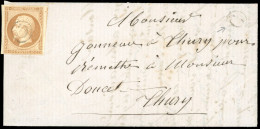 Monsieur
Gonneau à Thury pour
remettre à Monsieur
Doucet
Thury